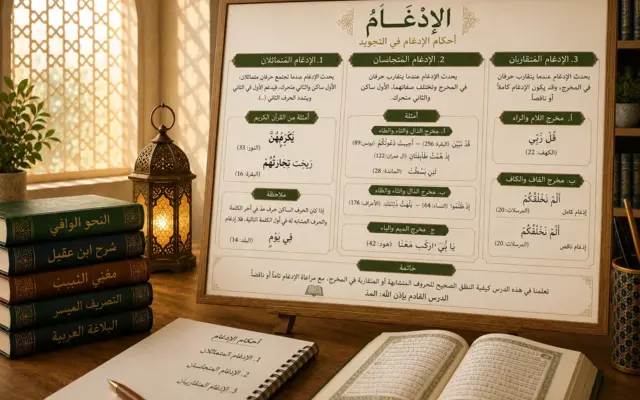 الإدْغَامُ
أحكام الإدغام في التجويد
1. الإدغام المُتماثلان
يحدث الإدغام عندما تجتمع حرفان متماثلان،
الأول ساكن والثاني متحرك، فيدغم الأول في الثاني
ويشدد الحرف الثاني
أمثلة من القرآن الكريم
(النور: 33)
رَبِحَت تِجَارَتُهُمْ
(البقرة: 16)
ملاحظة
إذا كان الحرف الساكن حرف مد في آخر الكلمة
والحرف المشابه له في أول الكلمة التالية، فلا إدغام
فِي يَوْمٍ
(البلد: 14)
2. الإدغام المُتجانسان
يحدث الإدغام عندما يتقارب حرفان
في المخرج وتختلف صفاتهما، الأول ساكن
والثاني متحرك.
أمثلة
أ. مخرج الدال والتاء والطاء
قَد تَبَيَّنَ (البقرة: 256) – أُجِيبَت دَعْوَتُكُمَا (يونس: 89)
إِذْ هَمَّت طَائِفَتَانِ (آل عمران: 122)
لَئِن بَسَطتَ (المائدة: 28)
ب. مخرج الذال والثاء والظاء
إِذ ظَّلَمُوا (النساء: 64) – يَلْهَث ذَّلِكَ (الأعراف: 176)
ج. مخرج الميم والباء
يَا بُنَيَّ ارْكَب مَعَنَا (هود: 42)
3. الإدغام المُتقاربان
يحدث الإدغام عندما يتقارب حرفان
في المخرج، وقد يكون الإدغام كاملاً
أو ناقصاً.
أ. مخرج اللام والراء
قُل رَبِّي
(الكهف: 22)
ب. مخرج القاف والكاف
أَلَمْ نَخْلُقكُمْ
إدغام كامل (المرسلات: 20)
أَلَمْ نَخْلُقكُمْ
إدغام ناقص (المرسلات: 20)
خاتمة
تعلمنا في هذه الدرس كيفية النطق الصحيح للحروف المتشابهة أو المتقاربة في المخرج، مع مراعاة الإدغام تاماً أو ناقصاً.
الدرس القادم بإذن الله: المد
النحو الوافي
شرح ابن عقيل
مغني اللبيب
التصريف الميسر
البلاغة العربية
أحكام الإدغام
1. الإدغام المتماثلان
2. الإدغام المتجانسان
3. الإدغام المتقاربان